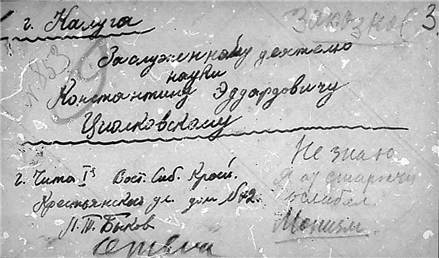 г. Калуга
Заказное 3.
N 853
Заслуженному деятелю
науки
Константину Эдуардовичу
Циолковскому
г. Чита I Вост. Сиб. Край.
Крестьянская ул. дом № 42.
П. Т. Быков
Не знаю
Я от старости
ослабел.
Монизм.